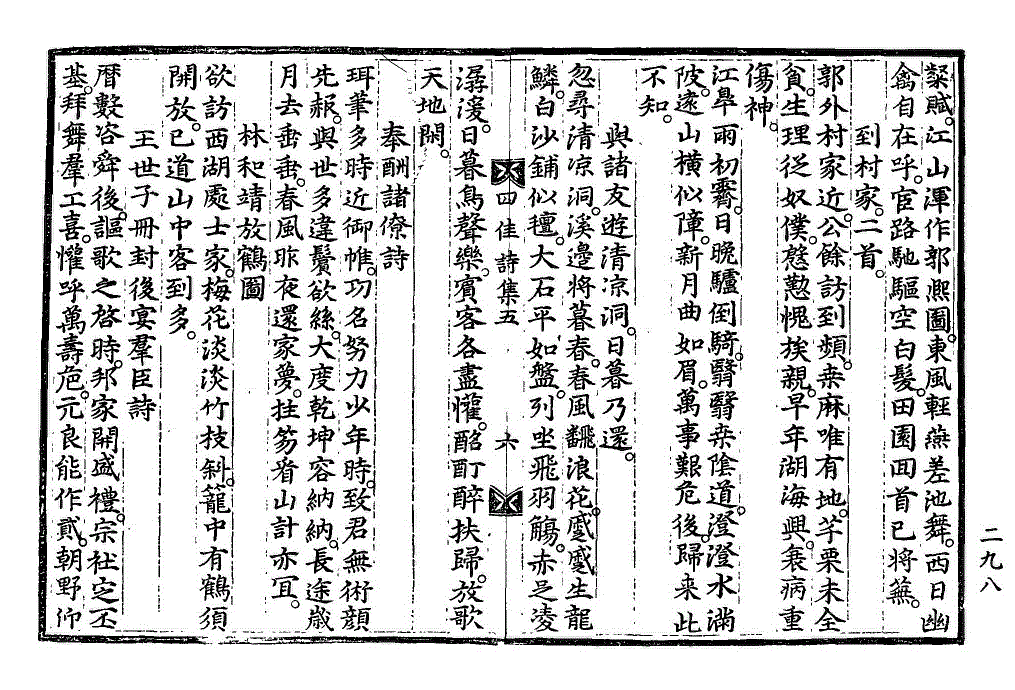 粲賦。江山渾作郭熙圖。東風輕燕差池舞。西日幽
禽自在呼。官路馳驅空白髮。田園囬首已將蕪。
到村家。二首。
郭外村家近。公餘訪到頻。桒麻唯有地。芋栗未全
貧。生理從奴僕。慇懃愧挨親。早年湖海興。衰病重
傷神。
江臯雨初霽。日晚驢倒騎。翳翳桒陰道。澄澄水滿
陂。遠山橫似障。新月曲如眉。萬事艱危後。歸来此
不知。
與諸友遊清凉洞。日暮乃還。
忽尋清凉洞。溪邊將暮春。春風飜浪花。蹙蹙生龍
鱗。白沙鋪似氊。大石平如盤。列坐飛羽觴。赤足凌
潺湲。日暮鳥聲樂。賓客各盡懽。酩酊醉扶歸。放歌
天地闊。
奉酬諸僚詩
珥筆多時近御帷。功名努力少年時。致君無術顔
先赧。與世多違鬢欲絲。大度乾坤容納納。長途歲
月去垂垂。春風昨夜還家夢。拄笏看山計亦冝。
林和靖放鶴圖
欲訪西湖處士家。梅花淡淡竹技斜。籠中有鶴須
開放。已道山中客到多。
王世子冊封後宴羣臣詩
曆數咨舜後。謳歌之啓時。邦家開盛禮。宗社定丕
基。拜舞羣工喜。懽呼萬壽巵。元良能作貳。朝野仰
四佳詩集五
六
二九八